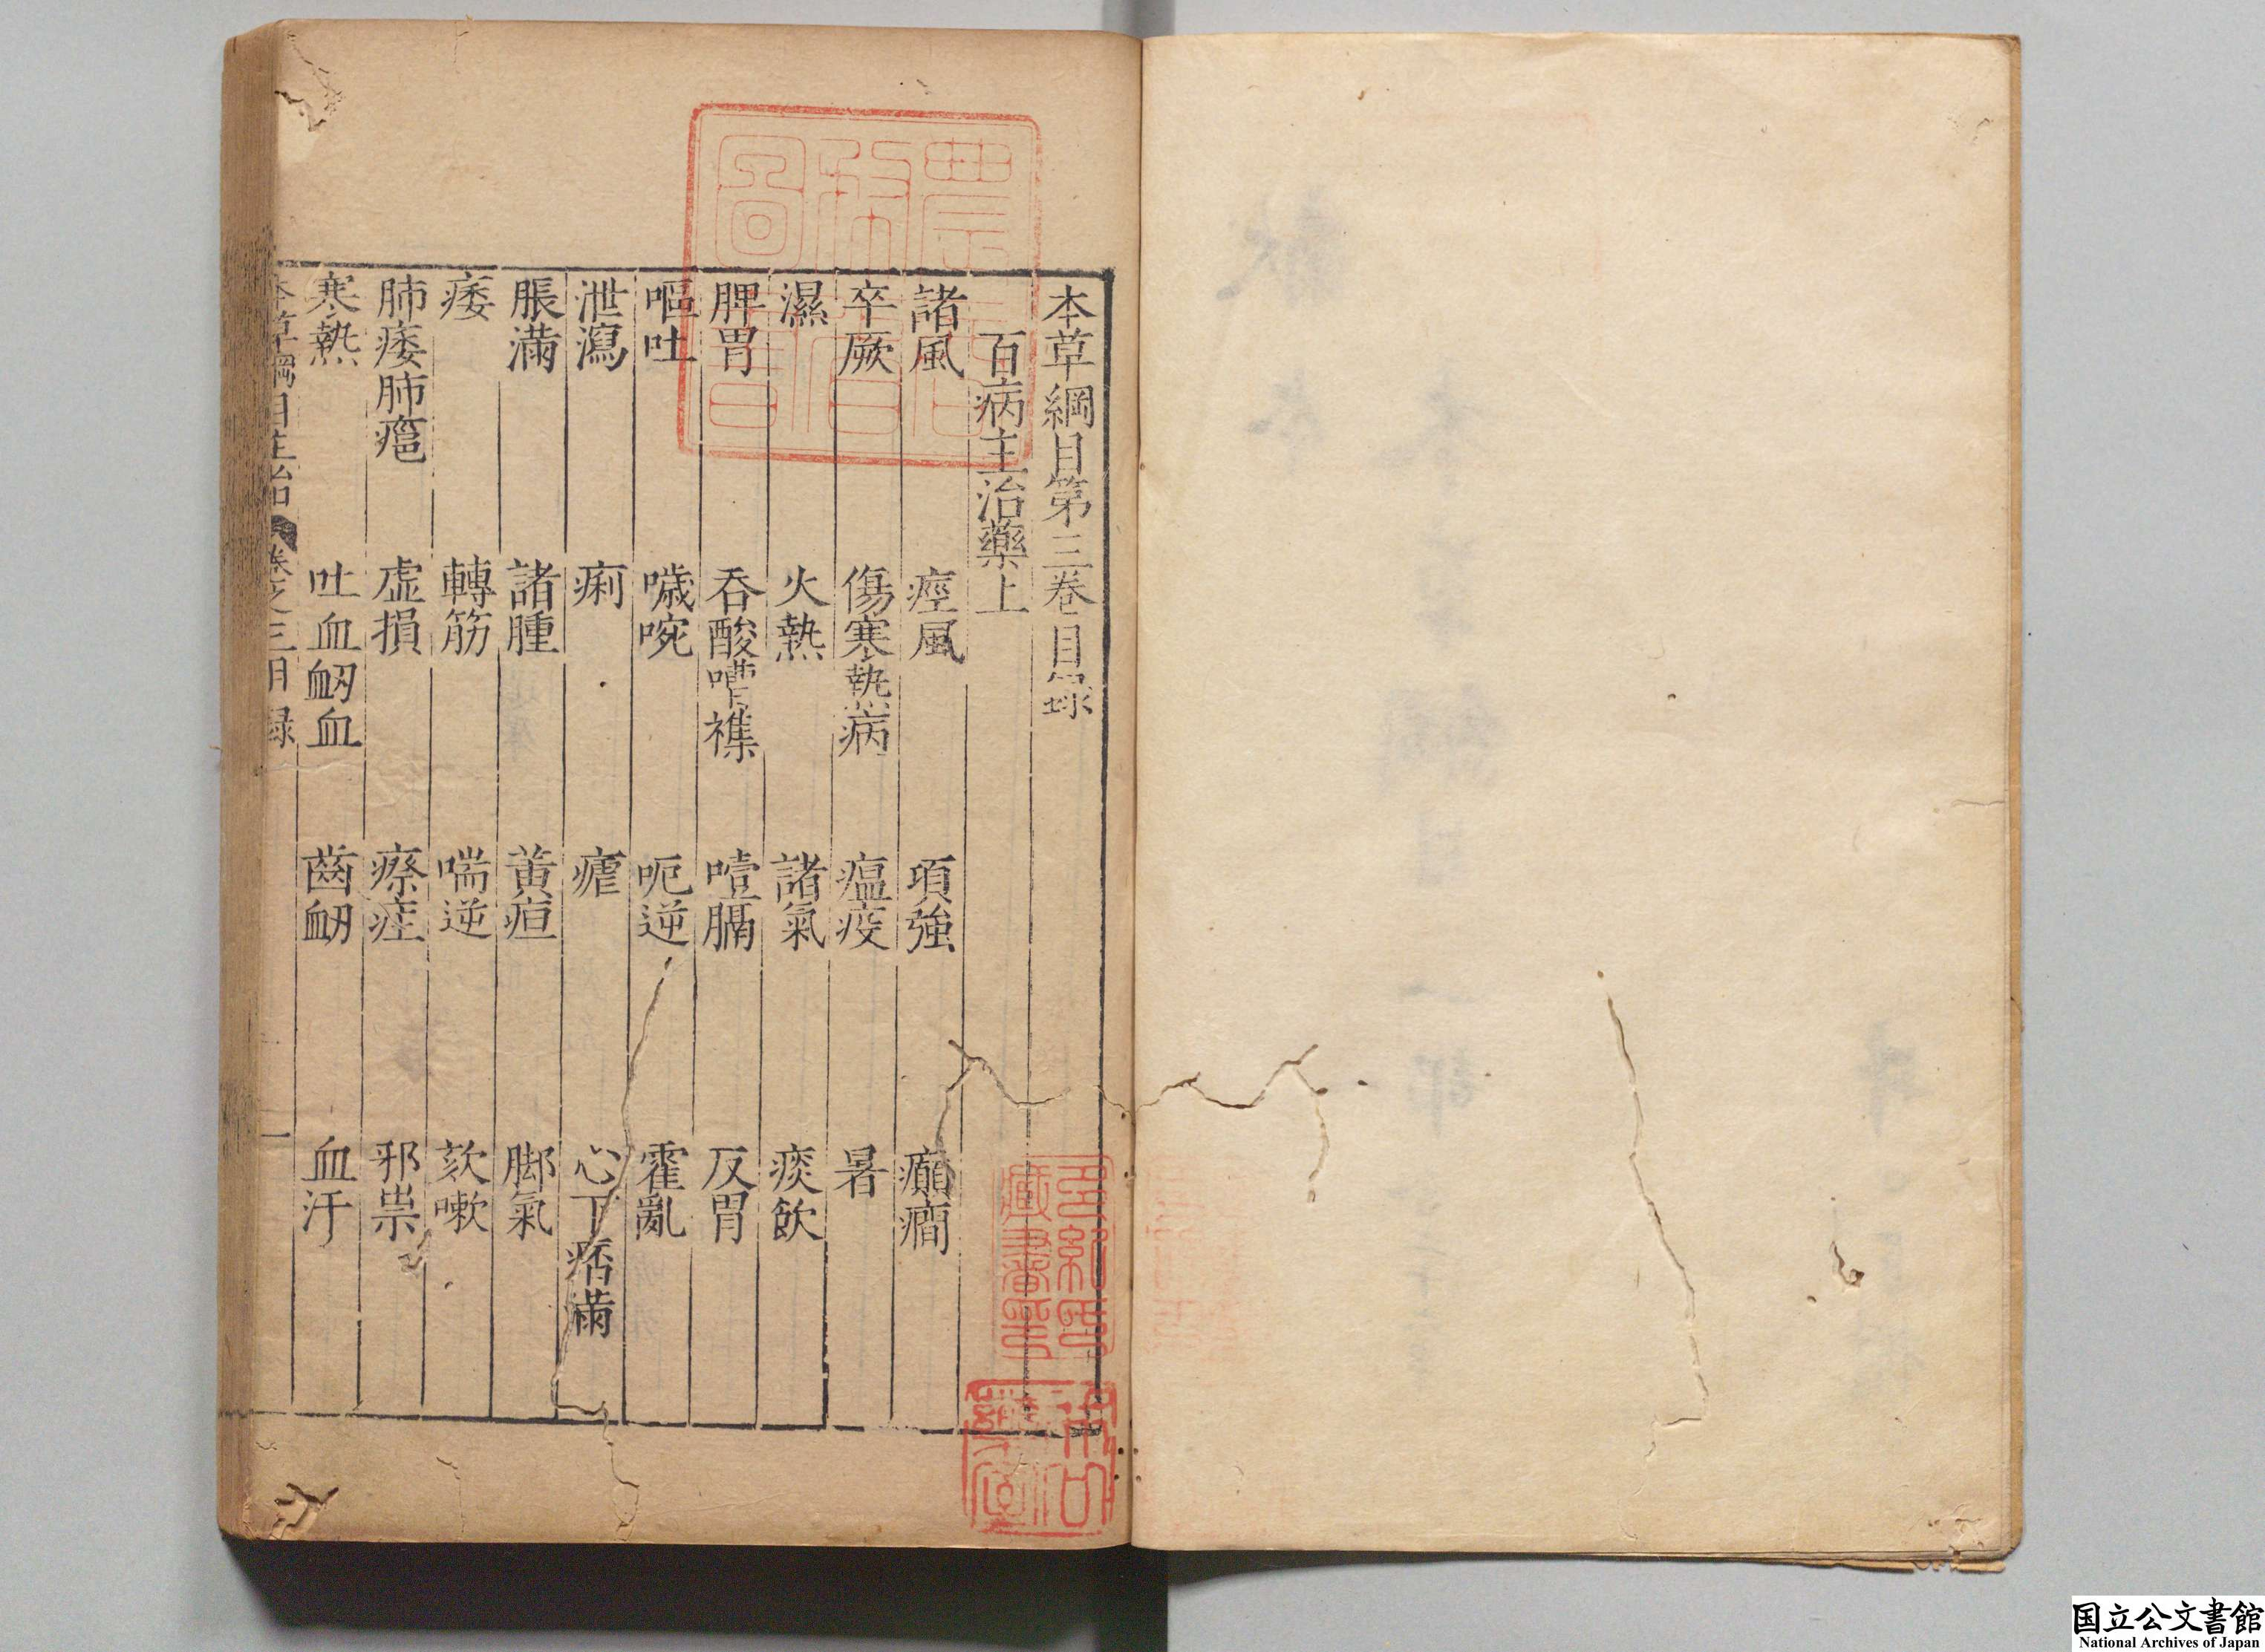 本草綱目第三卷目錄
百病主治藥上
諸風 痙風 項強 癲癇
卒厥 傷寒熱病 瘟疫 暑
濕 火熱 諸氣 痰飲
脾胃 吞酸嘈襍 噎膈 反胃
嘔吐 噦啘 呃逆 霍亂
泄瀉 痢 瘧 心下痞滿
脹滿 諸腫 黃疸 脚氣
痿 轉筋 喘逆 欬嗽
肺痿肺癰 虛損 瘵疰 邪祟
寒熱 吐血衂血 齒衂 血汗
本草綱目主治 卷之三目録 一
多紀氏藏書印
国立公文書館
National Archives of Japan